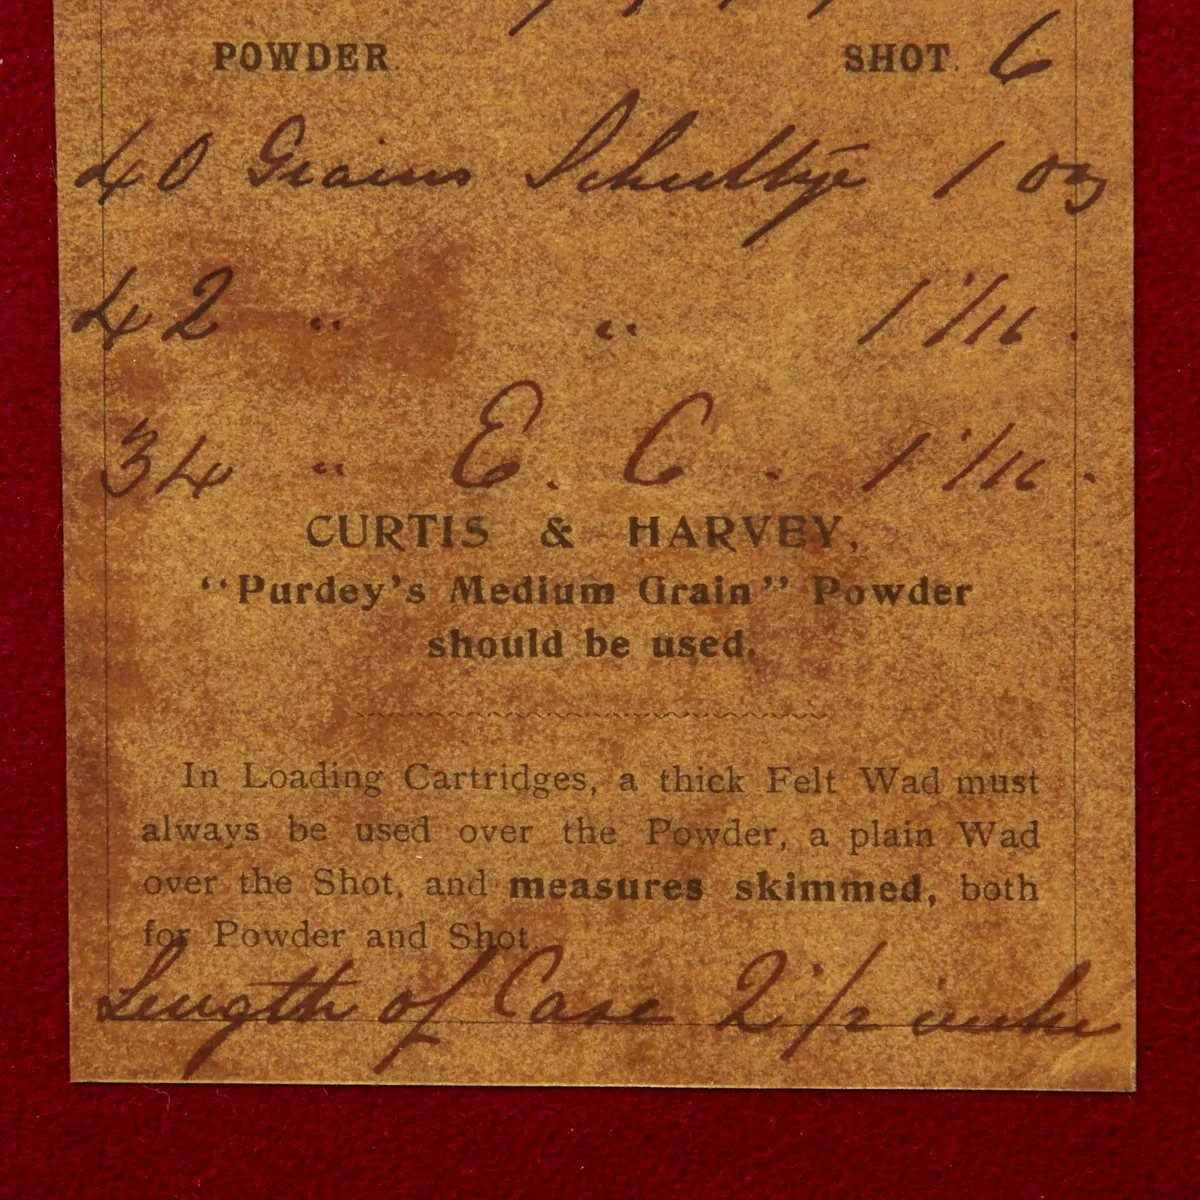 POWDER. SHOT. 6
40 Grains Schultze 1 oz
42 " " 1 1/16.
34 " E. C. 1 1/16.
CURTIS & HARVEY,
"Purdey's Medium Grain" Powder
should be used.
In Loading Cartridges, a thick Felt Wad must
always be used over the Powder, a plain Wad
over the Shot, and measures skimmed, both
for Powder and Shot.
Length of Case 2 1/2 inche